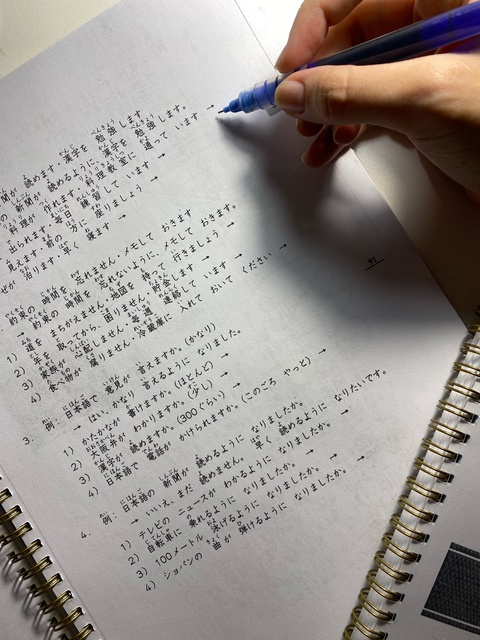 聞が 読めます・漢字を 勉強します
の 新聞が 読めるように、漢字を 勉強します。
料理が 作れます・料理教室に 通って います →
出られます・毎日 練習して います →
見えます・前の 方に 座りましょう →
ぜが 治ります・早く 寝ます →
約束の 時間を 忘れません・メモして おきます
約束の 時間を 忘れないように、メモして おきます。
1) 道を まちがえません・地図を 持って 行きましょう →
2) 年を 取ってから、困りません・貯金します →
3) 家族が 心配しません・毎週 連絡して います →
4) 食べ物が 腐りません・冷蔵庫に 入れて おいて ください →
3. 例：日本語で 意見が 言えますか。(かなり)
→ はい、かなり 言えるように なりました。
1) かたかなが 書けますか。(ほとんど) →
2) 大阪弁が わかりますか。(少し) →
3) 漢字が 読めますか。(300ぐらい) →
4) 日本語で 電話が かけられますか。(このごろ やっと) →
4. 例：日本語の 新聞が 読めるように なりましたか。
→ いいえ、まだ 読めません。早く 読めるように なりたいです。
1) テレビの ニュースが わかるように なりましたか。 →
2) 自転車に 乗れるように なりましたか。 →
3) 100メートル 泳げるように なりましたか。 →
4) ショパンの 曲が 弾けるように なりましたか。 →
91